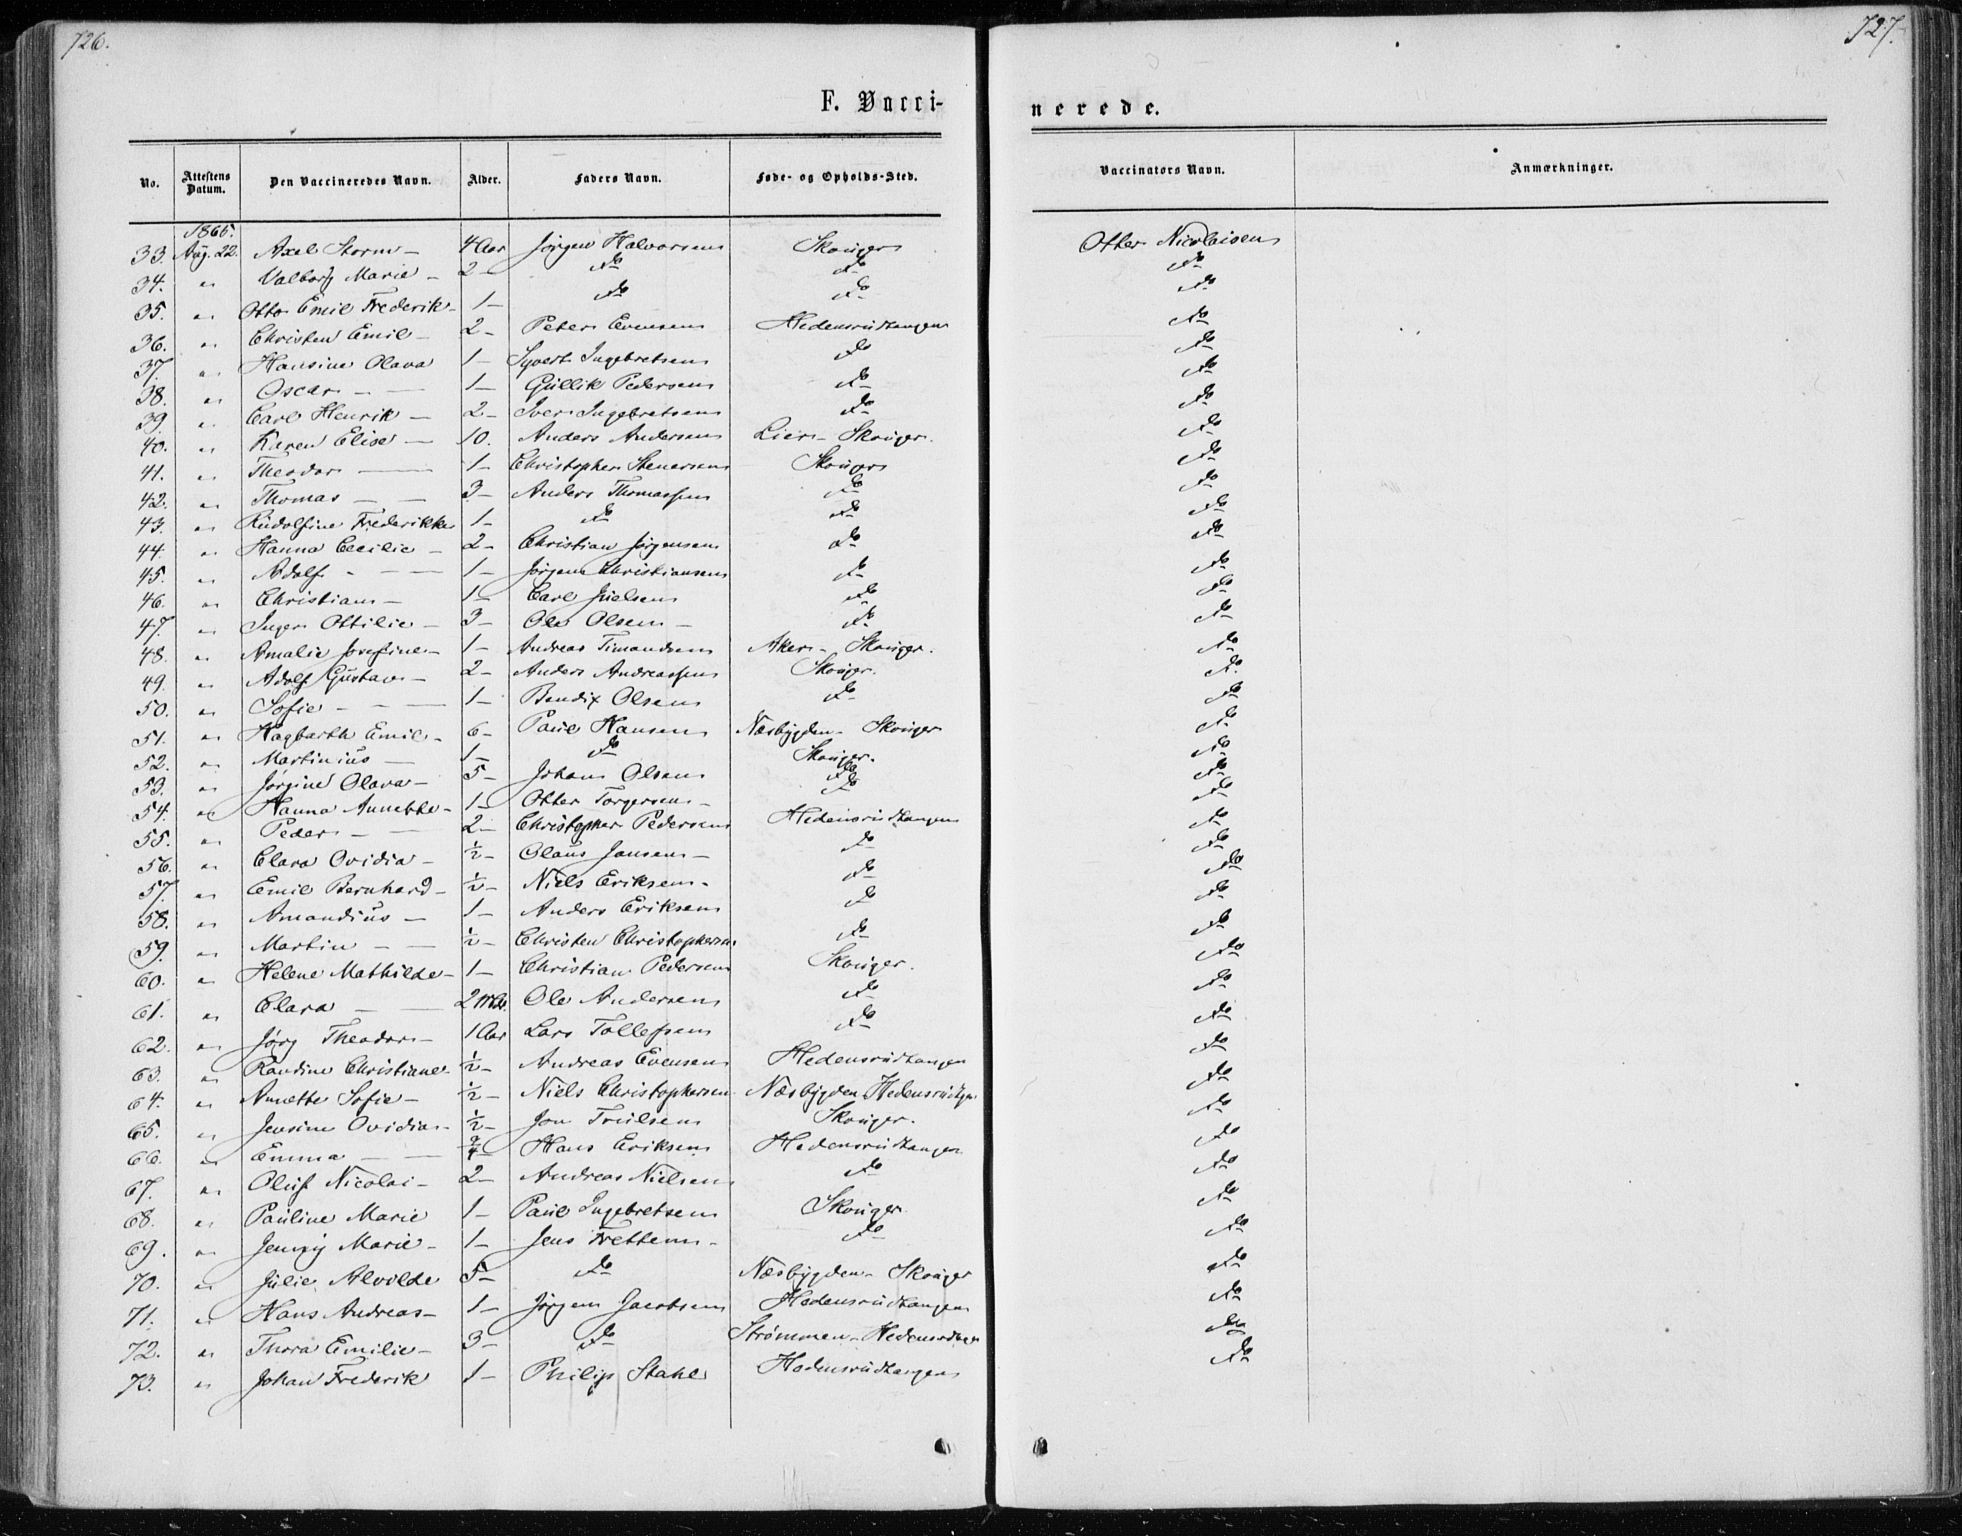 726.
727.
F. Vacci-
nerede.
No. Attestens Datum. Den Vaccineredes Navn. Alder. Faders Navn. Føde- og Opholds-Sted. Vaccinators Navn. Anmærkninger.
1865.
33. Aug. 22. Axel Storm - 4 Aar Jørgen Halvorsen Skouger Otter Nicolaisen
34. " Valborg Marie - 2 - do do do
35. " Otto Emil Frederik - 1 - do do do
36. " Christen Emil - 2 - Peter Evensen Hedensrudtangen do
37. " Hansine Olava 1 - Syvert Ingebretsen do do
38. " Oscar - - 1 - Gullik Pedersen do do
39. " Carl Henrik - 2 - Iver Ingebretsen do do
40. " Karen Elise - 10. Anders Andersen Lier - Skouger. do
41. " Theodor - 1 - Christopher Stenersen Skouger do
42. " Thomas - - 3 - Anders Thomassen do do
43. " Rudolfine Frederikke 1 - do do do
44. " Hanna Cecilie - 2 - Christian Jørgensen do do
45. " Adolf - - - 1 - Jørgen Christiansen do do
46. " Christian - 1 - Carl Juelsen do do
47. " Inger Ottilie - 3 - Ole Olsen - do do
48. " Amalie Josefine - 1 - Andreas Timandsen Aker - Skouger. do
49. " Adolf Gustav - 2 - Anders Andreassen Skouger. do
50. " Sofie - - - 1 - Bendix Olsen do do
51. " Hagbarth Emil - 6 - Paul Hansen Næsbygden - Skouger do
52. " Martinius - 1 - do Skouger. do
53. " Jørgine Olava - 5 - Johan Olsen do do
54. " Hanna Annette - 1 - Otter Torgersen - do do
55. " Peder - - 2 - Christopher Pedersen Hedensrudtangen do
56. " Clara Ovidia - ½ - Olaus Jansen - do do
57. " Emil Bernhard - ½ - Niels Eriksen - do do
58. " Amandius - 1 - Anders Eriksen do do
59. " Martin - - ½ - Christen Christophersen do do
60. " Helene Mathilde - 1 - Christian Pedersen Skouger. do
61. " Clara - - 2 Mdr. Ole Andersen do do
62. " Jørg Theodor - 1 Aar Lars Tollefsen do do
63. " Randine Christiane ½ - Andreas Evensen Hedensrudtangen do
64. " Annette Sofie - ½ - Niels Christophersen Næsbygden Hedensrudtgn do
65. " Jensine Ovidia - ½ - Jon Truelsen Skouger. do
66. " Emma - - ¾ Hans Eriksen Hedensrudtangen do
67. " Oluf Nicolai - 2 - Andreas Nielsen do do
68. " Pauline Marie 1 - Paul Ingebretsen Skouger. do
69. " Jenny Marie - 1 - Jens Fretten - do do
70. " Julie Alvilde 5 - do Næsbygden - Skouger do
71. " Hans Andreas - 1 - Jørgen Jacobsen Hedensrudtangen do
72. " Thora Emilie - 3 - do Strømmen - Hedensrdtgn do
73. " Johan Frederik 1 - Philip Stahl Hedensrudtangen do